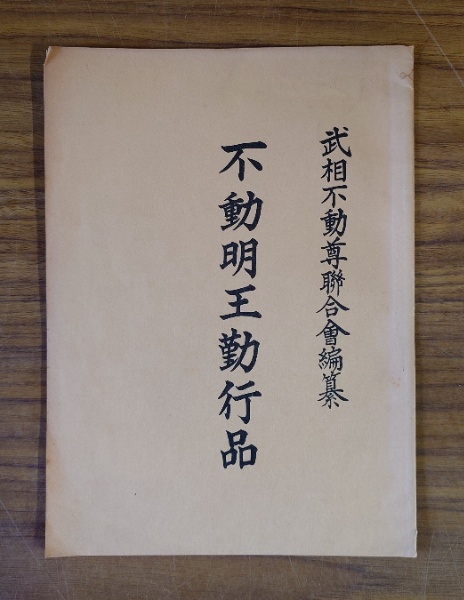 武相不動尊聯合會編纂
不動明王勤行品